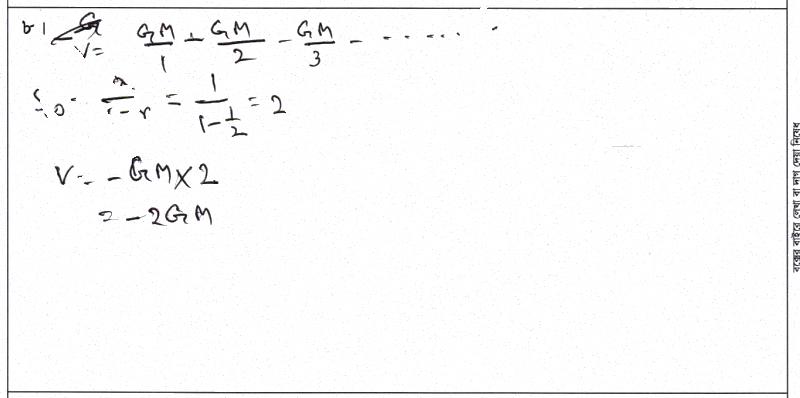 ৮। V = GM/1 - GM/2 - GM/3 - ......
S∞ = a/1-r = 1/1-1/2 = 2
V = - GM × 2
= - 2GM
বক্সের বাইরে লেখা বা দাগ দেয়া নিষেধ